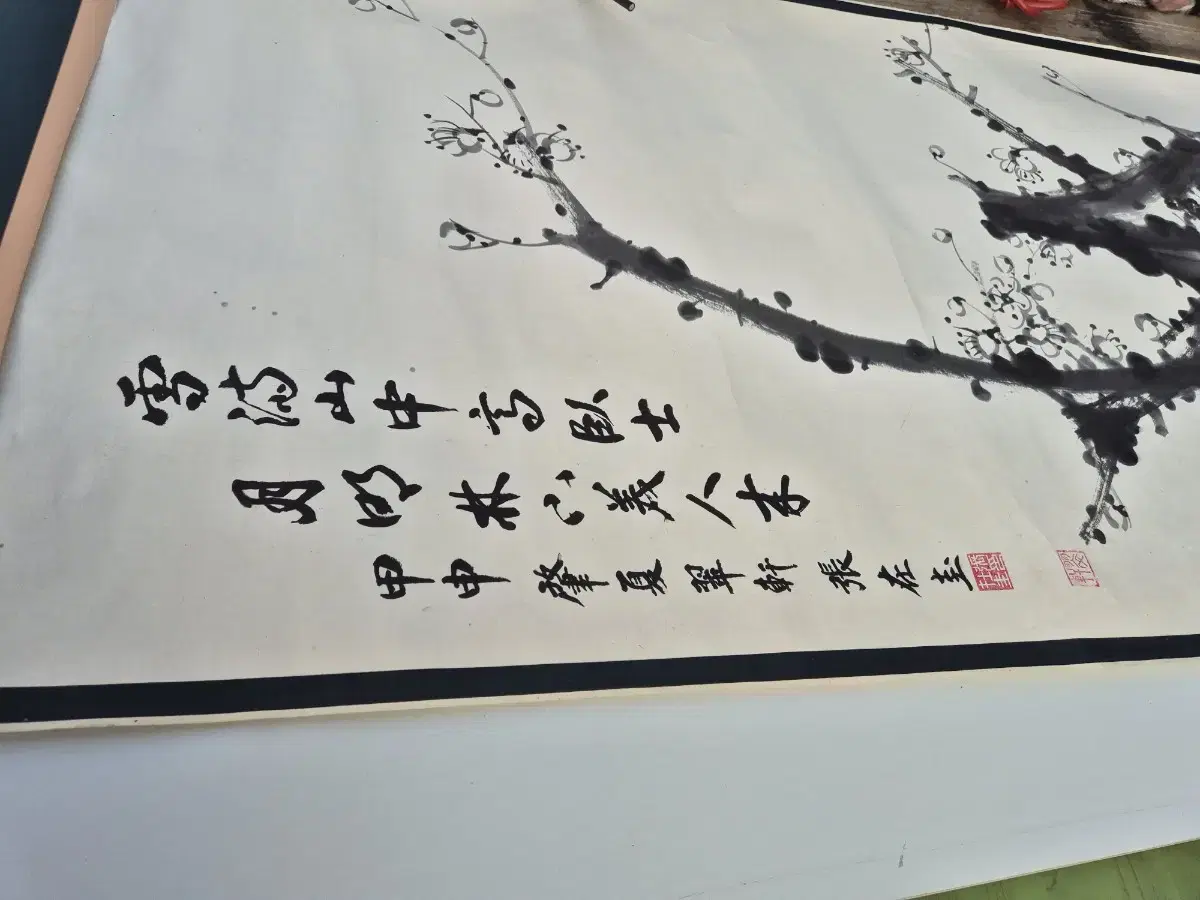 雪滿山中高臥士
月明林下美人來
甲申肇夏翠軒張在